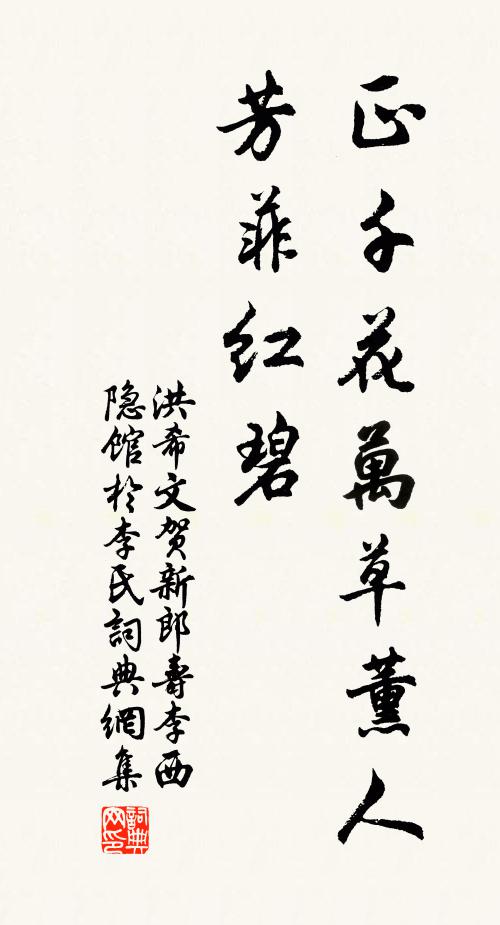 正千花萬草薰人
芳菲紅碧
洪希文贺新郎壽李西
隐馆於李氏詞典網集
詞典
网印